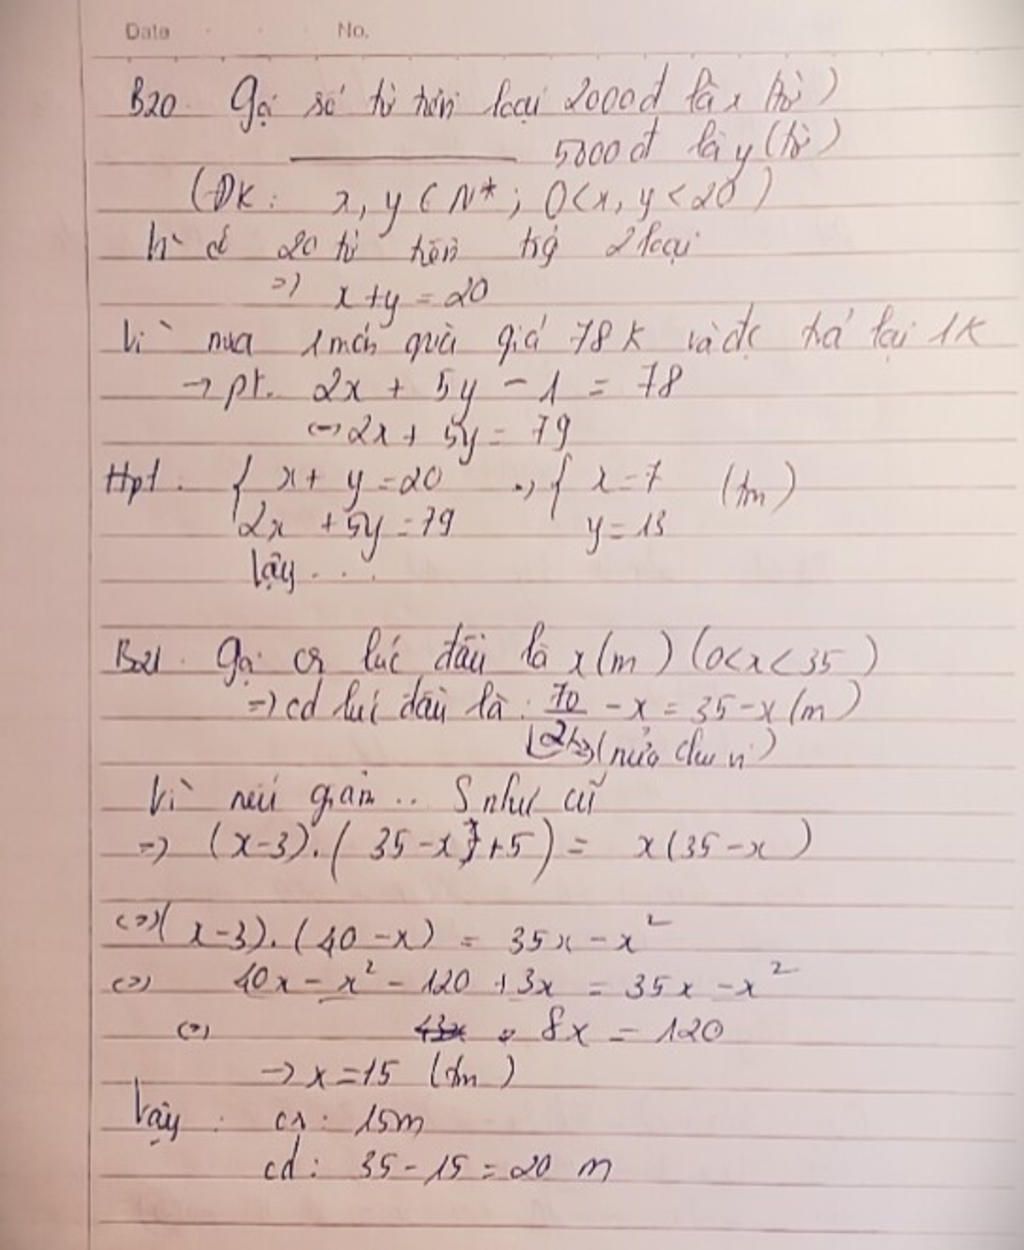 Date No.
B20. Gọi số tờ tiền loại 2000đ là x (tờ)
5000đ là y (tờ)
(ĐK: x, y ∈ N*; 0<x, y<20)
Vì có 20 tờ tiền 2 loại
=> x+y=20
Vì mua 1 món quà giá 78K và đc trả lại 1K
→ pt. 2x + 5y - 1 = 78
<=> 2x + 5y = 79
Hpt. { x + y = 20 <=> { x = 7 (tm)
2x + 5y = 79 y = 13
Vậy ...
B21. Gọi cr lúc đầu là x (m) (0<x<35)
=> cd lúc đầu là: 70/2 - x = 35-x (m)
(nửa chu vi)
Vì nếu giảm .. S như cũ
=> (x-3).(35-x+5) = x(35-x)
<=> (x-3).(40-x) = 35x-x²
<=> 40x - x² - 120 + 3x = 35x - x²
<=> 8x = 120
→ x = 15 (tm)
Vậy: cr: 15m
cd: 35-15=20 m